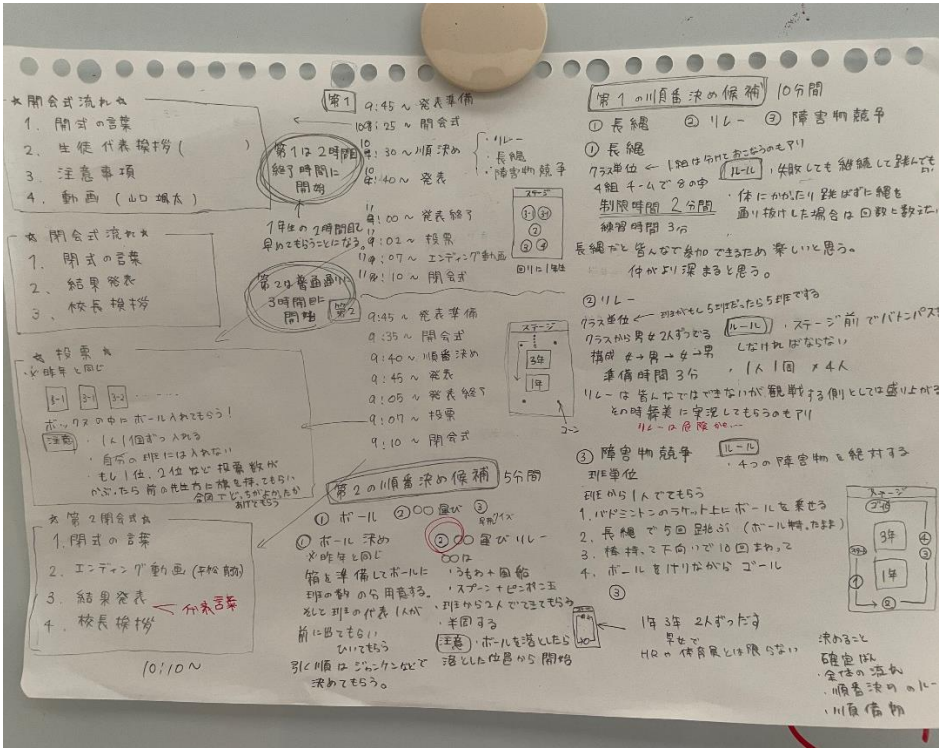 ☆開会式流れ☆
1. 開式の言葉
2. 生徒代表挨拶( )
3. 注意事項
4. 動画
☆閉会式流れ☆
1. 閉式の言葉
2. 結果発表
3. 校長挨拶
☆投票☆
※昨年と同じ
3-1 3-1 3-2
ボックスの中にボール入れてもらう!
注意 ・1人1個ずつ入れる
・自分の班には入れない
・もし1位、2位など投票数が
かぶったら前の先生方に旗を持ってもらい
☆第2閉会式☆
1. 閉式の言葉
2. エンディング動画
3. 結果発表
4. 校長挨拶
10:10~
第1
9:45~発表準備
25~開会式
30~順番決め
・リレー
・長縄
・障害物競争
40~発表
00~発表終了
02~投票
07~エンディング動画
10~閉会式
第1は2時間
終了時間に
開始
1年生の2時間目を
早めてもらうことになる。
第2は普通通り
3時間目に
開始
ステージ
3-1 3-1
②
③ ④
回りに1年生
第2
9:45~発表準備
9:35~開会式
9:40~順番決め
9:45~発表
9:05~発表終了
9:07~投票
9:10~閉会式
ステージ
3年
1年
コーン
第2の順番決め候補 5分間
① ボール ②○○運び ③
① ボール決め
※昨年と同じ
箱を準備してボールに
班の数の分用意する。
そして班の代表1人が
前に出てもらい
ひいてもらう
引く順はジャンケンなどで
決めてもらう。
② ○○運びリレー
○○は
・うちわ+風船
・スプーン+ピンポン玉
・班から2人でてきてもらう
・半周する
注意 ・ボールを落としたら
落とした位置から開始
第1の順番決め候補 10分間
① 長縄 ② リレー ③ 障害物競争
① 長縄
クラス単位 ← 1組は分けておこなうのもアリ
4組 チームで8の字
制限時間 2分間
練習時間 3分
ルール ・失敗しても継続して跳んでも
・体にかかったり跳ばずに縄を
通り抜けした場合は回数に数えない
長縄だと皆んなで参加できるため楽しいと思う。
仲がより深まると思う。
② リレー
クラス単位 ← 班がもし5班だったら5班でする
クラスから男女2人ずつでる
構成 女→男→女→男
準備時間3分
ルール ・ステージ前でバトンパス
しなければならない
・1人1回 ×4人
リレーは皆んなではできないが観戦する側としては盛り上がる
その時 実況してもらうのもアリ
リレーは危険か…
③ 障害物競争
班単位
班から1人でてもらう
ルール
・4つの障害物を絶対する
1. バドミントンのラケット上にボールを乗せる
2. 長縄で5回跳ぶ (ボール持ったまま)
3. 棒持って下向いて10回まわって
4. ボールをけりながらゴール
ステージ
ゴール
3年
1年
①
②
③
④
③
1年3年 2人ずつだす
男女で
HRや体育展とは限らない
決めること
・全体の流れ
・順番決めのルー